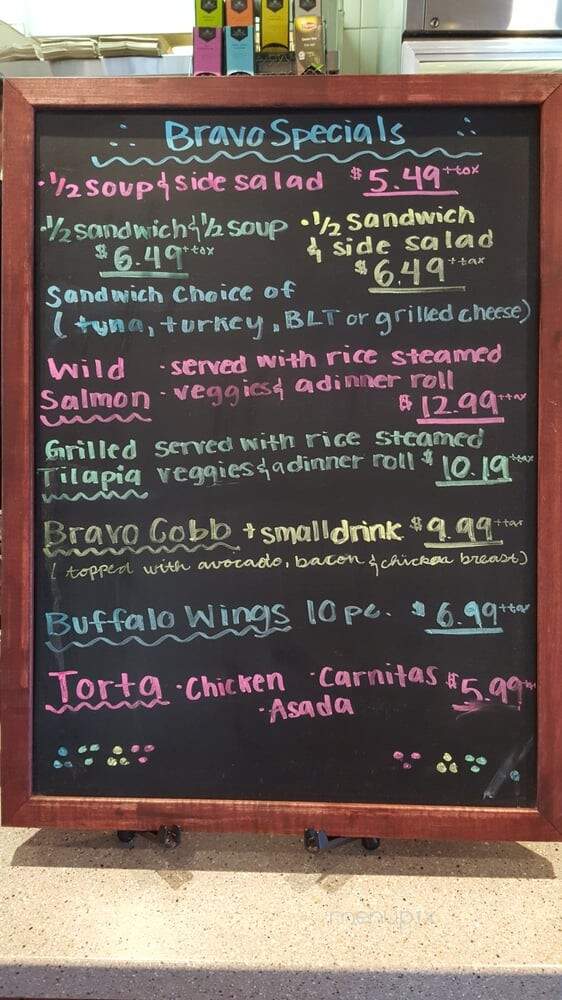 Bravo Specials
·1/2 soup & side salad $5.49 +tax
·1/2 sandwich & 1/2 soup
$6.49 +tax
·1/2 sandwich
& side salad
$6.49 +tax
Sandwich Choice of
(tuna, turkey, BLT or grilled cheese)
Wild Salmon
·served with rice steamed
·veggies & a dinner roll
$12.99 +tax
Grilled Tilapia
served with rice steamed
veggies & a dinner roll $10.19 +tax
Bravo Cobb + small drink $9.99 +tax
(topped with avocado, bacon & chicken breast)
Buffalo Wings 10 pc. $6.99 +tax
Torta ·Chicken ·Carnitas $5.99
·Asada
menupix